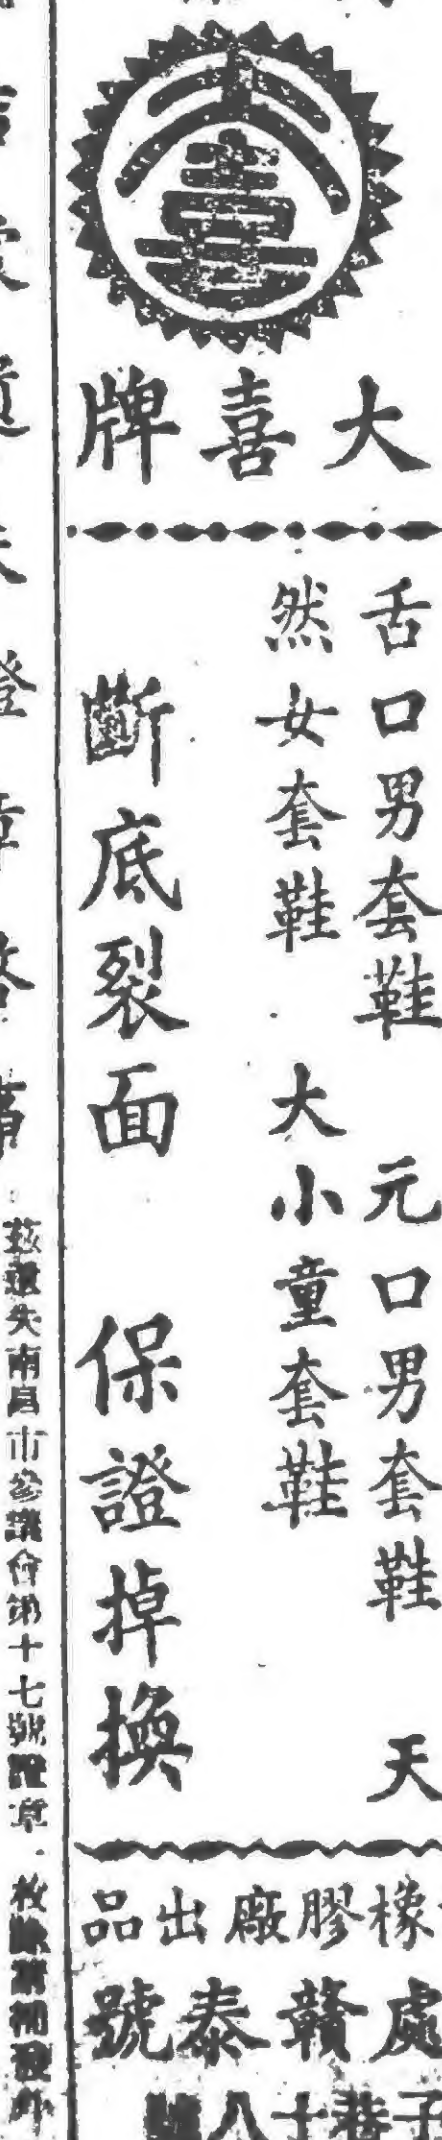 大喜牌
舌口男套鞋 元口男套鞋 天
然女套鞋 大小童套鞋
斷底裂面 保證掉換
橡膠廠出品
處贛泰號
子巷十八號
遺失證章啓事
茲遺失南昌市參議會第十七號證章